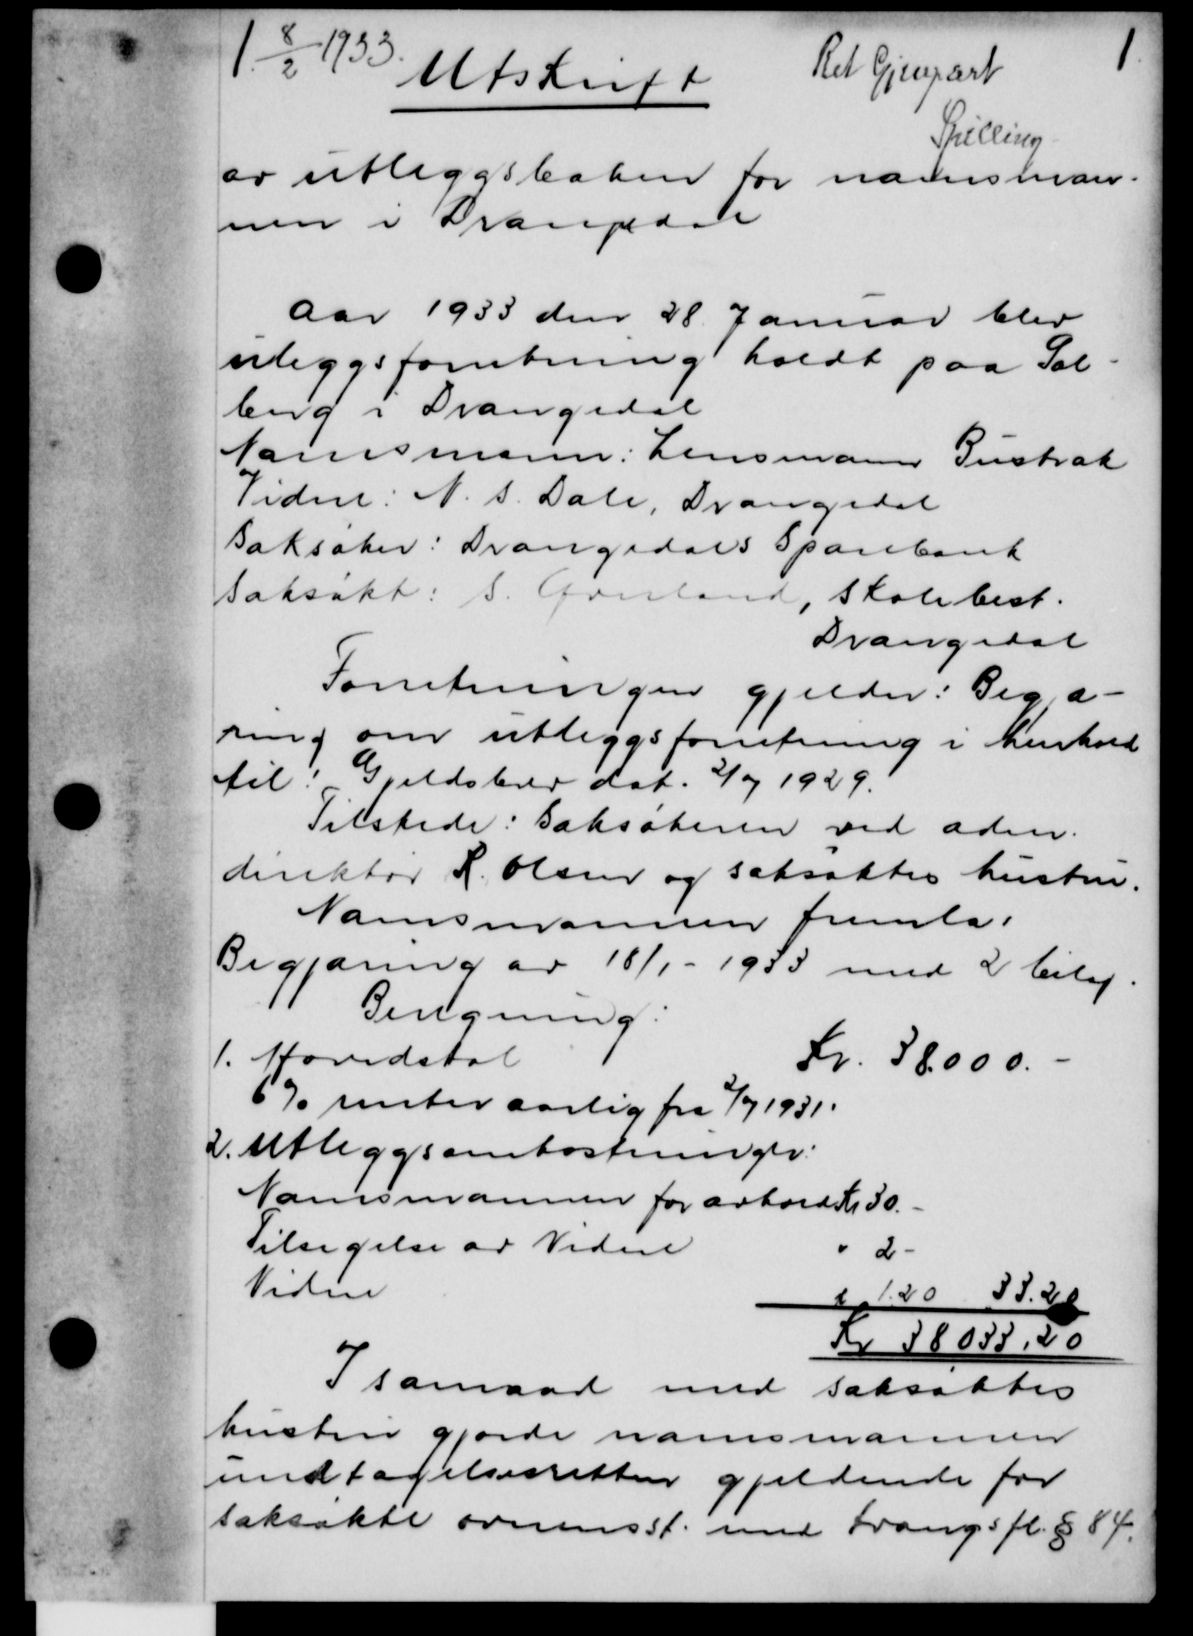 1. 8/2 1933.
Utskrift
Ret Gjenpart
1.
Spilling
av utleggsboken for namsman-
nen i Drangedal
Aar 1933 den 28. Januar blev
utleggsforretning holdt paa Sol-
berg i Drangedal
Namsmann: Lensmann Bustrak
Vidne: N. S. Dale, Drangedal
Saksøker: Drangedals Sparebank
Saksøkt: S. , Skolebest.
Drangedal
Forretningen gjelder: Begjæ-
ring om utleggsforretning i henhold
til: Gjeldsbrev dat. 2/7 1929.
Tilstede: Saksøkeren ved adm.
direktør R. Olsen og saksøktes hustru.
Namsmannen fremla:
Begjæring av 18/1 - 1933 med 2 bilag.
Beregning:
1. Hovedstol Kr. 38.000.-
6% renter aarlig fra 2/7 1931.
2. Utleggsomkostninger:
Namsmannen for avhold Kr 30.-
Tilsigelse av Vidne " 2-
Vidne " 1.20 33.20
Kr 38033,20
I samraad med saksøktes
hustru gjorde namsmannen
undtagelsesretten gjeldende for
saksøkte overensst. med tvangsfl. § 84.